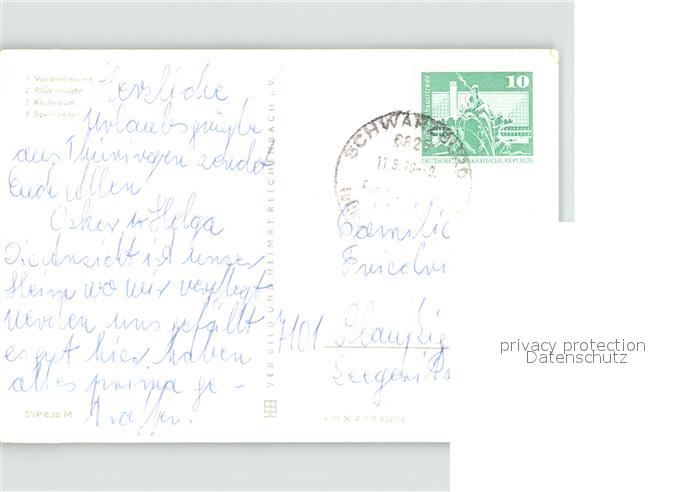 1 Vorderansicht
2 Rückansicht
3 Klubraum
4 Speisesaal
Herzliche
Urlaubsgrüße
aus Thüringen sendet
Euch allen
Oskar u Helga
Die Ansicht ist unser
Heim wo wir verpflegt
werden, uns gefällt
es gut hier, haben
alles prima ge-
troffen.
EVP 0,20 M
VEB BILD UND HEIMAT REICHENBACH i. V.
10
DEUTSCHE DEMOKRATISCHE REPUBLIK
SCHWARZBURG
682
Familie
Friedri
7101
privacy protection
Datenschutz